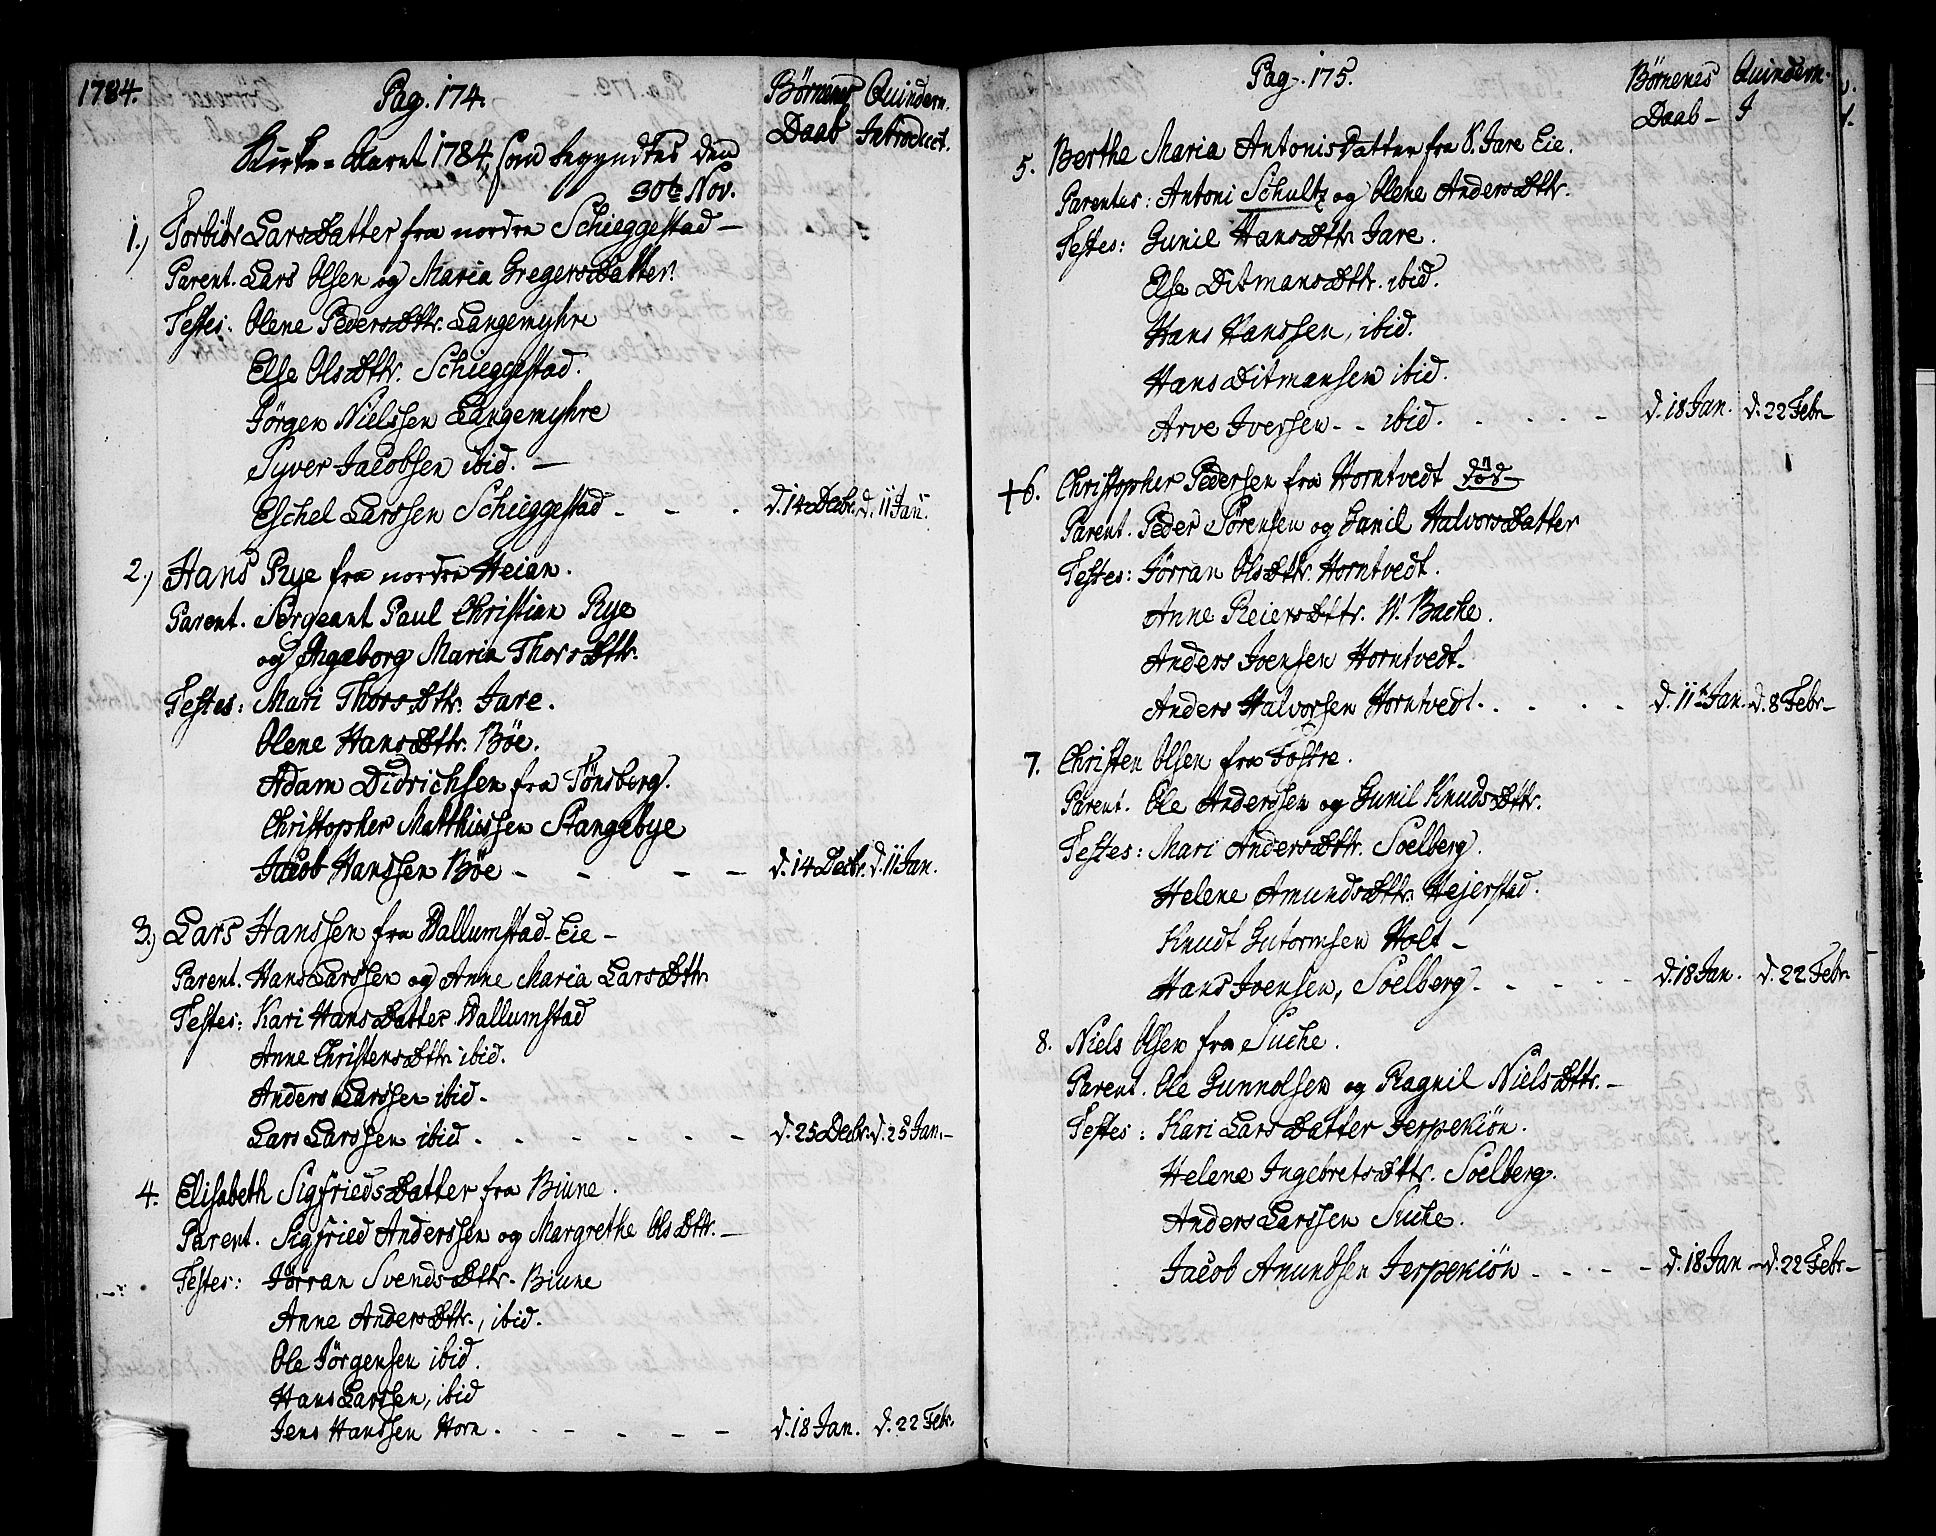 1784.
Pag. 174.
Børnenes Quindern.
Daab Introduct.
Kirke-Aaret 1784, som begyndtes den
30te Nov.
1.) Torbiør LarsDatter fra nordre Schieggestad —
Parent. Lars Olsen og Maria GregersDatter.
Testes: Olene PedersDttr. Langemyhre
Else OlsDttr. Schieggestad.
Jörgen Nielssen Langemyhre
Syver Jacobsen ibid. —
Eschel Larssen Schieggestad - - . d. 14 Decbr. d. 11 Jan.
2.) Hans Rye fra nordre Heian.
Parent. Sergeant Paul Christian Rye
og Ingeborg Maria ThorsDttr.
Testes: Mari ThorsDttr. Jare.
Olene HansDttr. Böe.
Adam Didrichsen fra Tönsberg.
Christopher Matthiessen Stangebye
Jacob Hanssen Böe - - - - d. 14 Decbr. d. 11 Jan.
3.) Lars Hanssen fra Vallumstad-Eie -
Parent. Hans Larssen og Anne Maria LarsDttr
Testes: Kari HansDatter Vallumstad
Anne ChristensDttr. ibid.
Anders Larssen ibid.
Lars Larssen ibid. - - - - - - d. 25 Decbr. d. 25 Jan. -
4. Elisabeth SigfriedsDatter fra Biune.
Parent. Sigfried Anderssen og Margrethe OlsDttr. —
Testes: Jörran SvendsDttr. Biune
Anne AndersDttr., ibid.
Ole Jörgensen ibid.
Hans Larssen, ibid
Jens Hanssen Horn. - - - - - d. 18 Jan. d. 22 Febr.
Pag. 175.
Børnenes Quindern.
Daab — I
5. Berthe Maria AntonisDatter fra V. Jare Eie.
Parentes: Antoni Schultz og Olene AndersDttr.
Testes: Gunil HansDttr Jare.
Else DitmansDttr. ibid.
Hans Hanssen, ibid.
Hans Ditmansen ibid.
Arve Iversen - - ibid. . . . - d. 18 Jan. d. 22 Febr -
†6. Christopher Pedersen fra Horntvedt död
Parent. Peder Sörensen og Gunil HalvorsDatter
Testes: Jörran OlsDttr. Horntvedt.
Anne ReiersDttr. N. Backe.
Anders Joensen Horntvedt.
Anders Halvorsen Horntvedt. . . . . d. 11te Jan. d. 8 Febr -
7. Christen Olsen fra Fostre.
Parent. Ole Anderssen og Gunil KnudsDttr.
Testes: Mari AndersDttr. Soelberg.
Helene AmundsDttr. Hejerstad.
Knudt Gutormsen Holt -
Hans Joensen, Soelberg. - - - - d. 18 Jan. d. 22 Febr.
8. Niels Olsen fra Suche.
Parent. Ole Gunnolsen og Ragnil NielsDttr. -
Testes: Kari LarsDatter Jerpekiön.
Helene IngebretsDttr. Soelberg.
Anders Larssen Suche.
Jacob Amundsen Jerpekiön - - - - d. 18 Jan - d. 22 Febr -